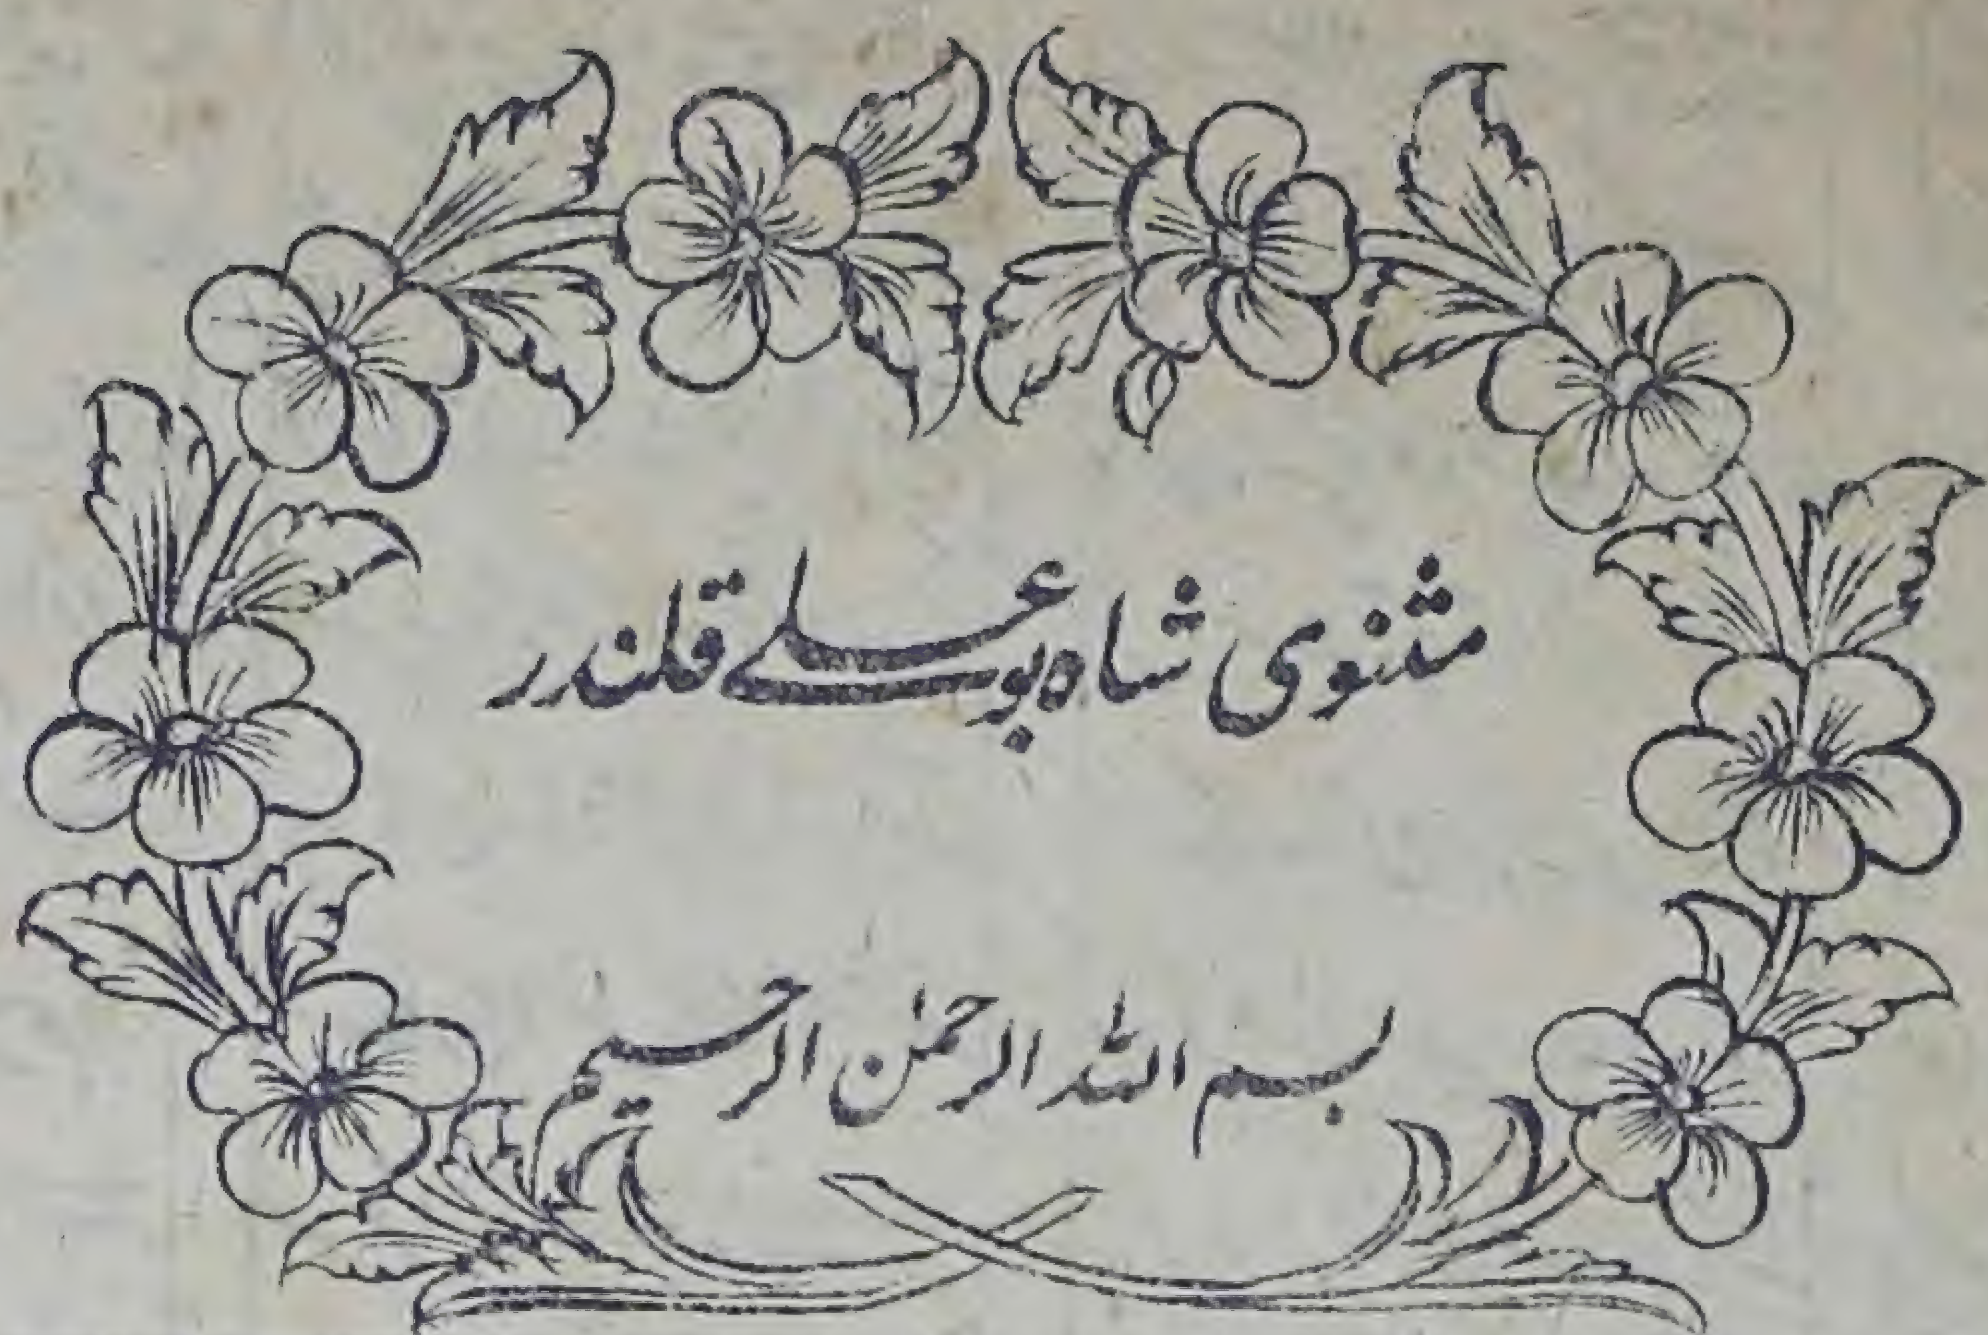 مثنوی شاہ بوعلی قلندر
بسم اللہ الرحمٰن الرحیم